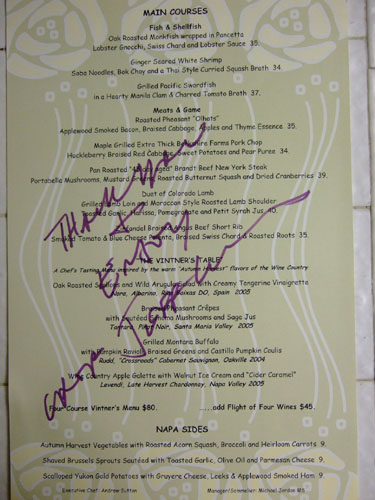 MAIN COURSES
Fish & Shellfish
Oak Roasted Monkfish wrapped in Pancetta
Lobster Gnocchi, Swiss Chard and Lobster Sauce 35.
Ginger Seared White Shrimp
Soba Noodles, Bok Choy and a Thai Style Curried Squash Broth 34.
Grilled Pacific Swordfish
in a Hearty Manila Clam & Charred Tomato Broth 37.
Meats & Game
Roasted Pheasant "Olhets"
Applewood Smoked Bacon, Braised Cabbage, Apples and Thyme Essence 35.
Maple Grilled Extra Thick Berkshire Farms Pork Chop
Huckleberry Braised Red Cabbage, Sweet Potatoes and Pear Puree 34.
Pan Roasted Aged" Brandt Beef New York Steak
Portabella Mushrooms, Mustard Roasted Butternut Squash and Dried Cranberries 39.
Duet of Colorado Lamb
Grilled Lamb Loin and Moroccan Style Roasted Lamb Shoulder
Roasted Garlic, Harissa, Pomegranate and Petit Syrah Jus 40.
Angus Beef Short Rib
Smoked Tomato & Blue Cheese Polenta, Braised Swiss Chard & Roasted Roots 35.
THE VINTNER'S TABLE
A Chef's Tasting Menu inspired by the warm "Autumn Harvest" flavors of the Wine Country
Oak Roasted Scallops and Wild Arugula Salad with Creamy Tangerine Vinaigrette
Nora, Albarino, Rias Baixas DO, Spain 2005
Braised Pheasant Crêpes
with Sautéed Sonoma Mushrooms and Sage Jus
Tantara, Pinot Noir, Santa Maria Valley 2005
Grilled Montana Buffalo
with Pumpkin Ravioli, Braised Greens and Castillo Pumpkin Coulis
Rudd, "Crossroads" Cabernet Sauvignon, Oakville 2004
Wine Country Apple Galette with Walnut Ice Cream and "Cider Caramel"
Levendi, Late Harvest Chardonnay, Napa Valley 2005
Four Course Vintner's Menu $80. .....add Flight of Four Wines $45.
THANK YOU
&
ENJOY
NAPA SIDES
Autumn Harvest Vegetables with Roasted Acorn Squash, Broccoli and Heirloom Carrots 9.
Shaved Brussels Sprouts Sautéed with Toasted Garlic, Olive Oil and Parmesan Cheese 9.
Scalloped Yukon Gold Potatoes with Gruyere Cheese, Leeks & Applewood Smoked Ham 9.
Executive Chef: Andrew Sutton Manager/Sommelier: Michael Jordan MS